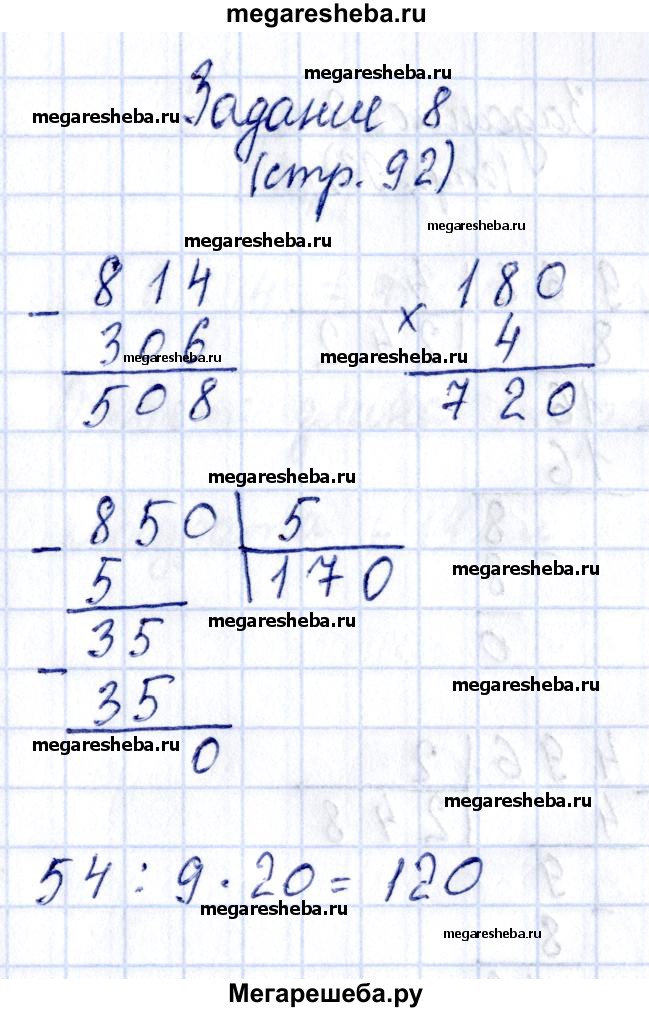 megaresheba.ru
megaresheba.ru
megaresheba.ru
Задание 8
(стр. 92)
megaresheba.ru
megaresheba.ru
- 814
306
508
× 180
4
720
megaresheba.ru
megaresheba.ru
megaresheba.ru
- 850 | 5
5 | 170
megaresheba.ru
megaresheba.ru
- 35
35
0
megaresheba.ru
megaresheba.ru
megaresheba.ru
54 : 9 · 20 = 120
megaresheba.ru
megaresheba.ru
Мегарешеба.ру